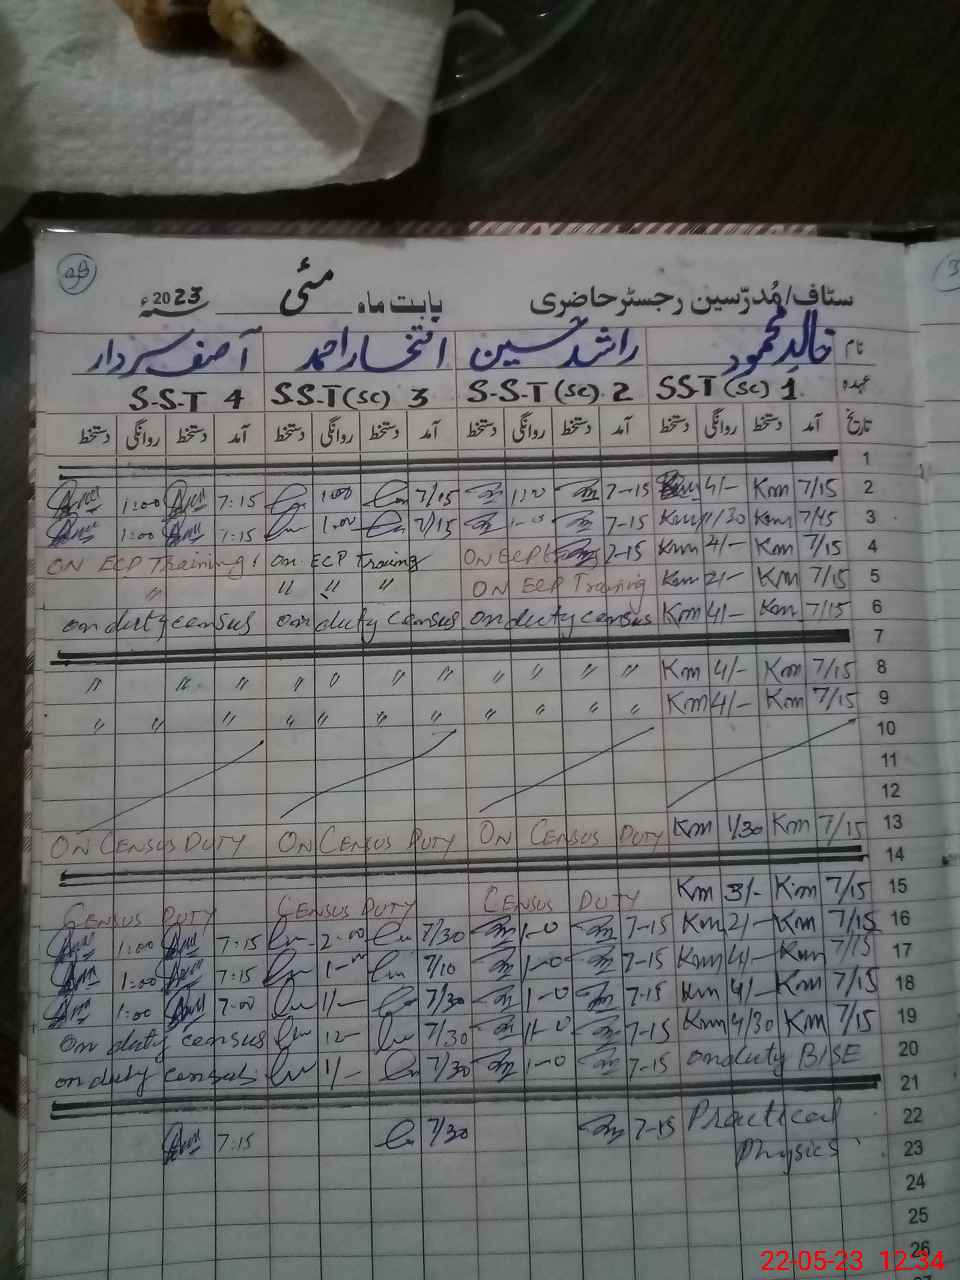 28
سٹاف/مُدرّسین رجسٹر حاضری بابت ماہ مئی 2023ء
نام خالد محمود راشد حسین افتخار احمد آصف سردار
عہدہ SST (SC) 1 S-S-T (SC) 2 SS-T (SC) 3 S-S-T 4
تاریخ آمد دستخط روانگی دستخط آمد دستخط روانگی دستخط آمد دستخط روانگی دستخط آمد دستخط روانگی دستخط
1
1:00 7:15 1:00 7/15 7-15 4/- Km 7/15 2
1:00 1:15 1:00 7/15 7-15 Km 7/45 3
ON ECP Training on ECP Training ON ECP 7-15 Km 4/- Km 7/15 4
" " " " ON ECP Training Km 2/- Km 7/15 5
on duty census on duty census on duty census Km 4/- Km 7/15 6
7
" " " " " " " " " " " Km 4/- Km 7/15 8
" " " " " " " " " " " Km 4/- Km 7/15 9
10
11
12
ON CENSUS DUTY ON CENSUS DUTY ON CENSUS DUTY Km 1/30 Km 7/15 13
14
CENSUS DUTY CENSUS DUTY CENSUS DUTY Km 3/- Km 7/15 15
1:00 7:15 2-00 7/30 1-0 7-15 Km 2/- Km 7/15 16
1:00 7:15 7/10 1-0 7-15 Km 4/- Km 7/15 17
1:00 7:00 1/- 7/30 1-0 7-15 Km 4/- Km 7/15 18
on duty census 12- 7/30 7-15 Km 4/30 Km 7/15 19
on duty census 1/- 7/30 1-0 7-15 on duty BISE 20
21
7:15 7/30 7-15 Practical 22
Physics 23
24
25
26
22-05-23 12:34